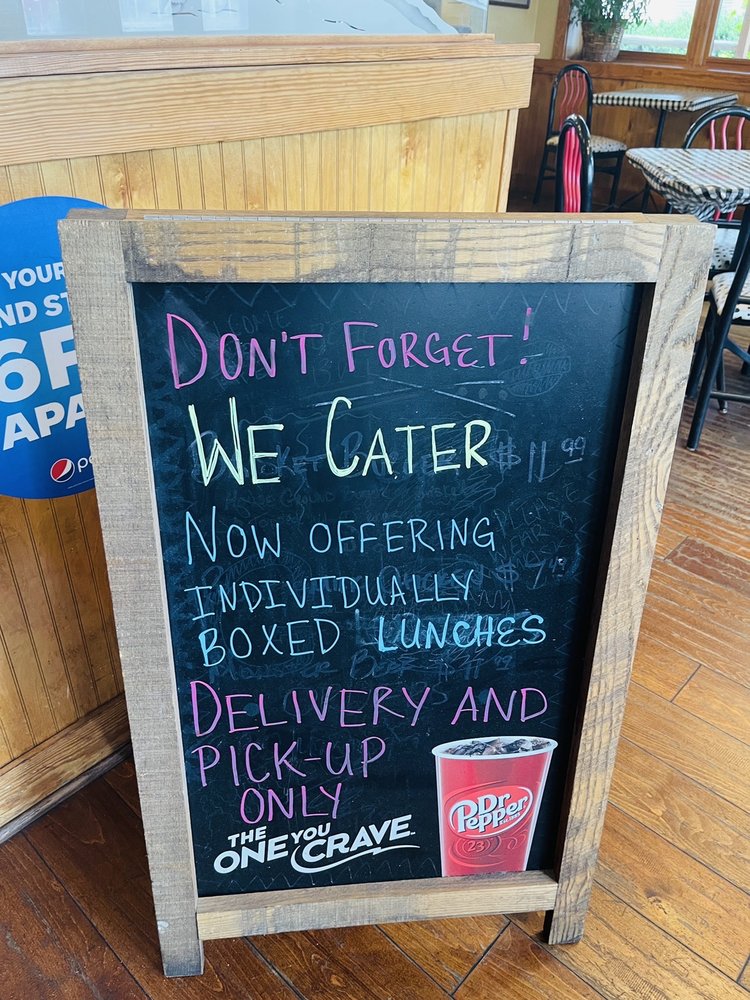 YOUR
ND ST
6F
APA
DON'T FORGET!
WE CATER
$11.99
NOW OFFERING
INDIVIDUALLY
BOXED LUNCHES
DELIVERY AND
PICK-UP
ONLY
THE
ONE YOU
CRAVE
Dr
Pepper
23